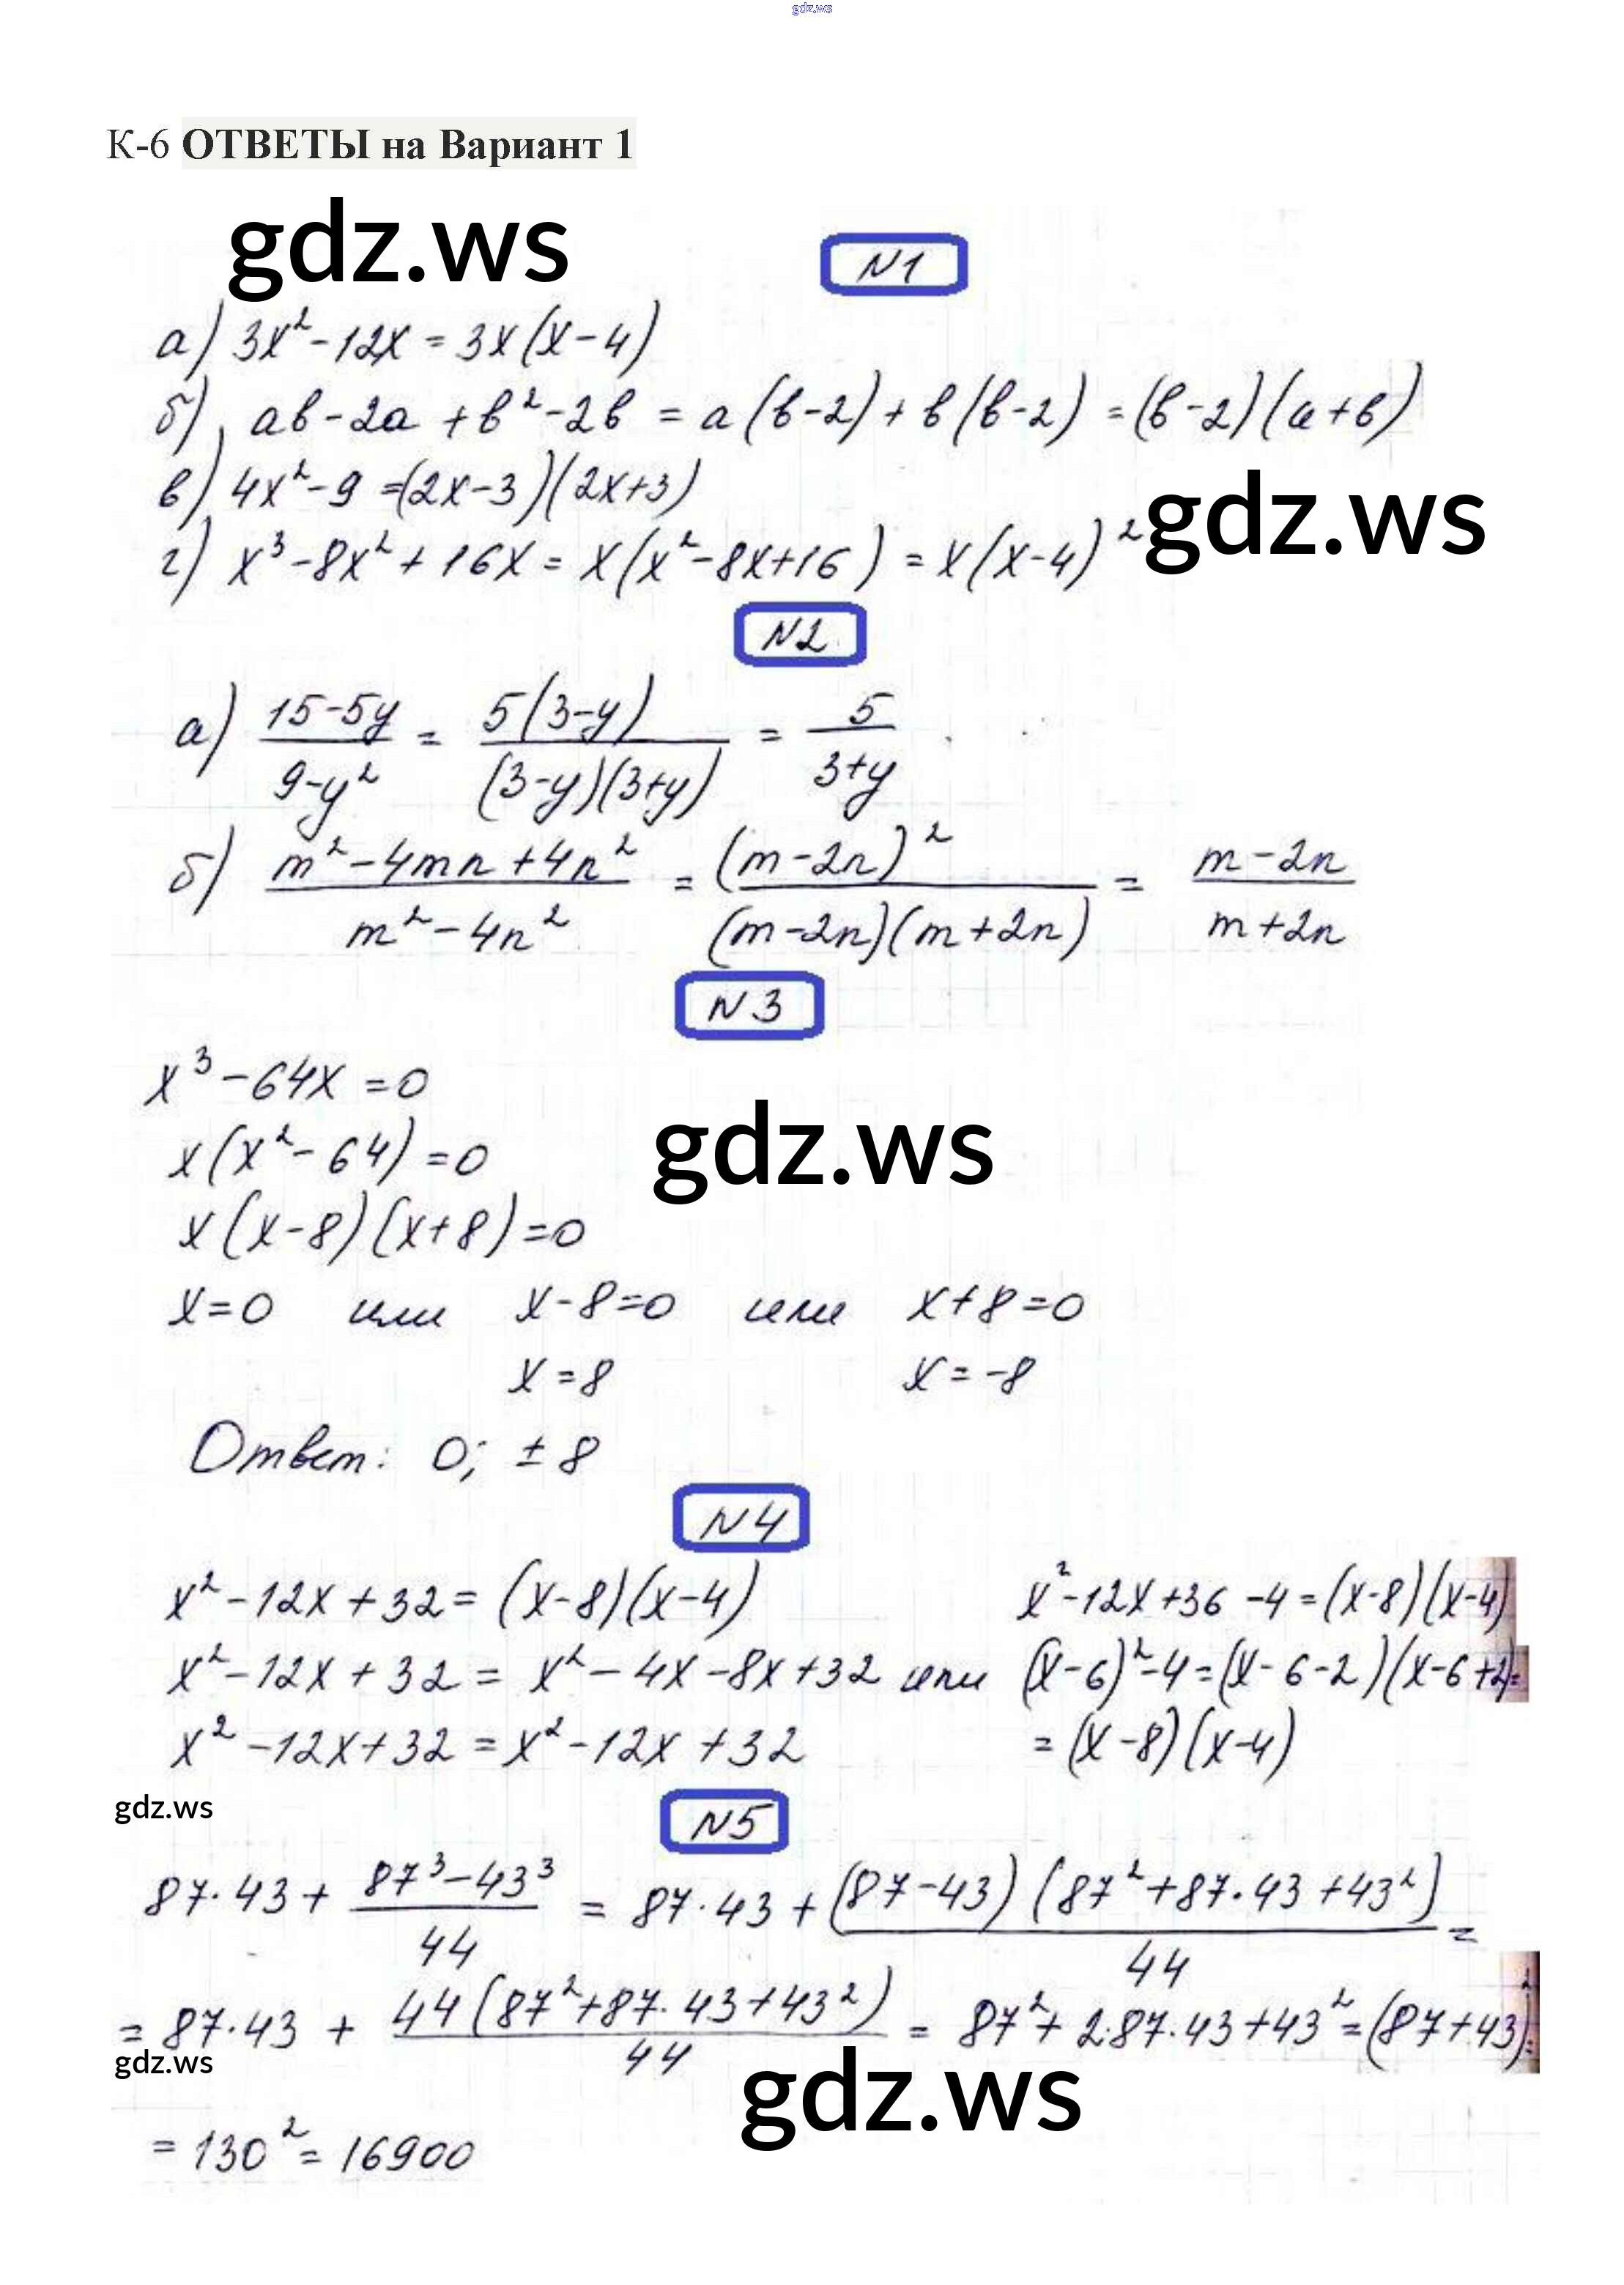 gdz.ws
К-6 ОТВЕТЫ на Вариант 1
gdz.ws
N1
а) 3x² - 12x = 3x(x - 4)
б) ab - 2a + b² - 2b = a(b - 2) + b(b - 2) = (b - 2)(a + b)
в) 4x² - 9 = (2x - 3)(2x + 3)
gdz.ws
г) x³ - 8x² + 16x = x(x² - 8x + 16) = x(x - 4)²
N2
а) (15 - 5y)/(9 - y²) = 5(3 - y)/((3 - y)(3 + y)) = 5/(3 + y)
б) (m² - 4mn + 4n²)/(m² - 4n²) = (m - 2n)²/((m - 2n)(m + 2n)) = (m - 2n)/(m + 2n)
N3
x³ - 64x = 0
x(x² - 64) = 0
gdz.ws
x(x - 8)(x + 8) = 0
x = 0 или x - 8 = 0 или x + 8 = 0
x = 8 x = -8
Ответ: 0; ± 8
N4
x² - 12x + 32 = (x - 8)(x - 4) x² - 12x + 36 - 4 = (x - 8)(x - 4)
x² - 12x + 32 = x² - 4x - 8x + 32 или (x - 6)² - 4 = (x - 6 - 2)(x - 6 + 2) =
x² - 12x + 32 = x² - 12x + 32 = (x - 8)(x - 4)
gdz.ws
N5
87·43 + (87³ - 43³)/44 = 87·43 + (87 - 43)(87² + 87·43 + 43²)/44 =
= 87·43 + 44(87² + 87·43 + 43²)/44 = 87² + 2·87·43 + 43² = (87 + 43)² =
gdz.ws
gdz.ws
= 130² = 16900